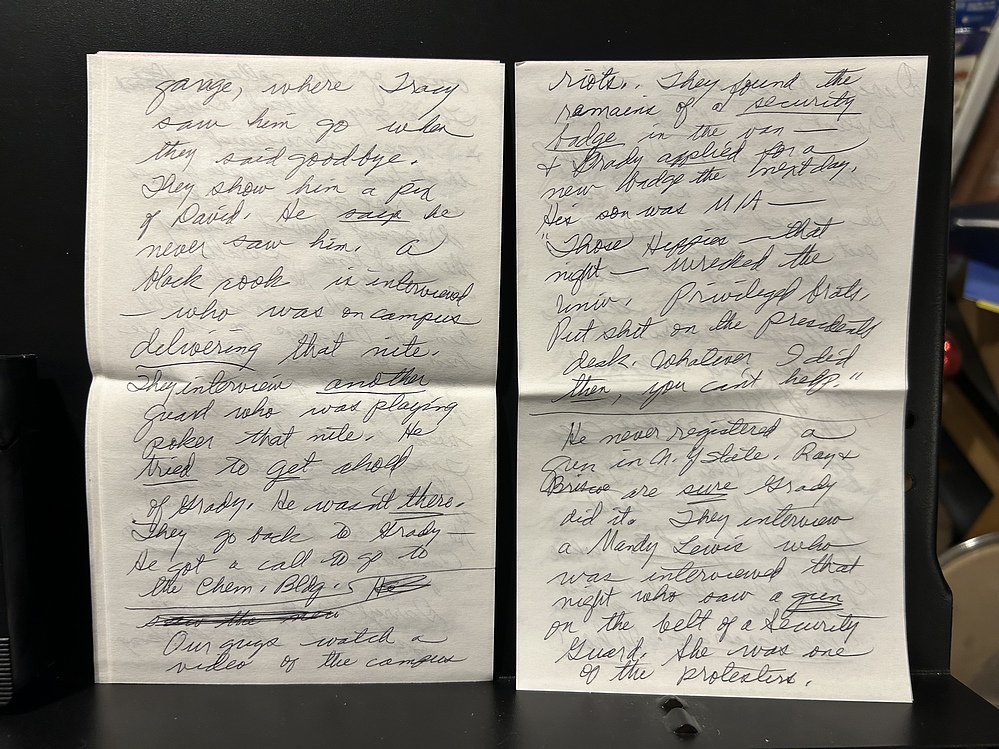 garage, where Tracy
saw him go when
they said goodbye.
They show him a pix
of David. He says he
never saw him. A
black cook is interviewed
— who was on campus
delivering that nite.
They interview another
guard who was playing
poker that nite. He
tried to get ahold
of Grady. He wasn't there.
They go back to Grady —
He got a call to go to
the Chem. Bldg. He
saw the men
Our guys watch a
video of the campus
riots. They found the
remains of a security
badge in the van —
& Grady applied for a
new badge the next day.
His son was MIA —
"Those Hippies — that
night — wrecked the
Univ. Privileged brats.
Put shit on the presidents
desk. Whatever I did
then, you can't help."
He never registered a
gun in N.Y State. Ray &
Briscoe are sure Grady
did it. They interview
a Mandy Lewis who
was interviewed that
night who saw a gun
on the belt of a Security
Guard. She was one
of the protesters.